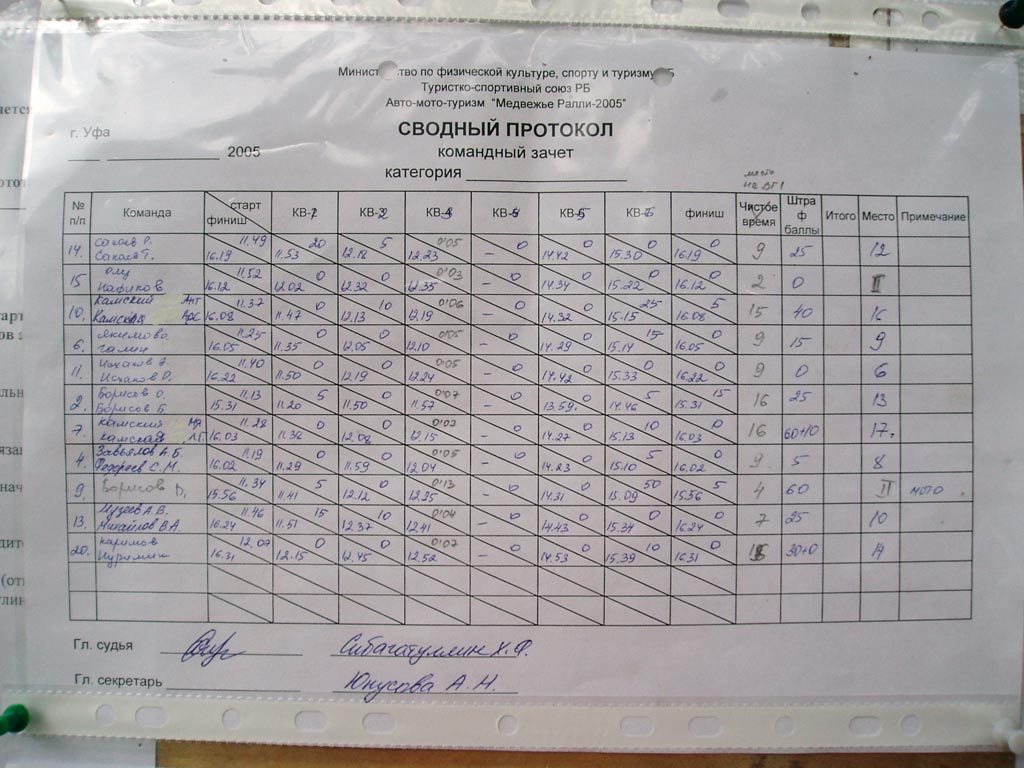 по физической культуре, спорту и туризму
Туристско-спортивный союз РБ
Авто-мото-туризм "Медвежье Ралли-2005"
г. Уфа
СВОДНЫЙ ПРОТОКОЛ
2005
командный зачет
категория
место
на ВГ1
№ п/п Команда старт финиш КВ- КВ- КВ- КВ- КВ-5 КВ-6 финиш Чистое время Штраф баллы Итого Место Примечание
14. 11.49 20 5 0'05 0 0 0 0
16.19 11.53 12.18 12.23 – 14.42 15.30 16.19 9 25 12
15 11.52 0 0 0'03 0 0 0 0
16.12 12.02 12.32 12.35 – 14.34 15.22 16.12 2 0 II
10. Камский 11.37 0 10 0'06 0 0 25 5
16.08 11.47 12.13 12.19 – 14.32 15.15 16.08 15 40 16
6. 11.25 0 0 0'05 0 0 15 0
16.05 11.35 12.05 12.10 – 14.29 15.14 16.05 9 15 9
11. 11.40 0 0 0'05 0 0 0 0
Исхаков 16.22 11.50 12.19 12.24 – 14.42 15.33 16.22 9 0 6
2. Борисов О. 11.13 5 0 0'07 0 0 5 15
Борисов Б. 15.31 11.20 11.50 11.57 – 13.59 14.46 15.31 16 25 13
7. Камский 11.28 0 0 0 0 10 0
Камская 16.03 11.38 12.08 12.15 – 14.27 15.13 16.03 16 60+10 17.
4. Завьялов А.Б. 11.19 0 0 0'05 0 0 5 0
Федореев С.М. 16.02 11.29 11.59 12.04 – 14.23 15.10 16.02 9 5 8
9. Борисов 11.34 5 0 0'13 0 0 50 5
15.56 11.41 12.12 12.25 – 14.31 15.09 15.56 4 60 II мото
13. Музеев А.В. 11.46 15 10 0'04 0 0 0 0
Михайлов В.А. 16.24 11.51 12.37 12.41 – 14.43 15.34 16.24 7 25 10
20. Каримов 12.07 0 0 0'07 0 0 10 0
16.31 12.15 12.45 12.52 – 14.53 15.39 16.31 30+0 14
Гл. судья Сибагатуллин Х.Ф.
Гл. секретарь Юнусова А.Н.